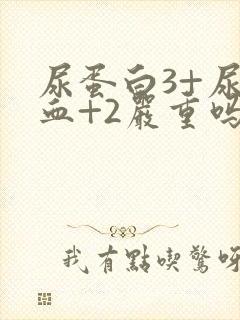 尿蛋白3+尿
血+2嚴重嗎
我有點喫驚呀